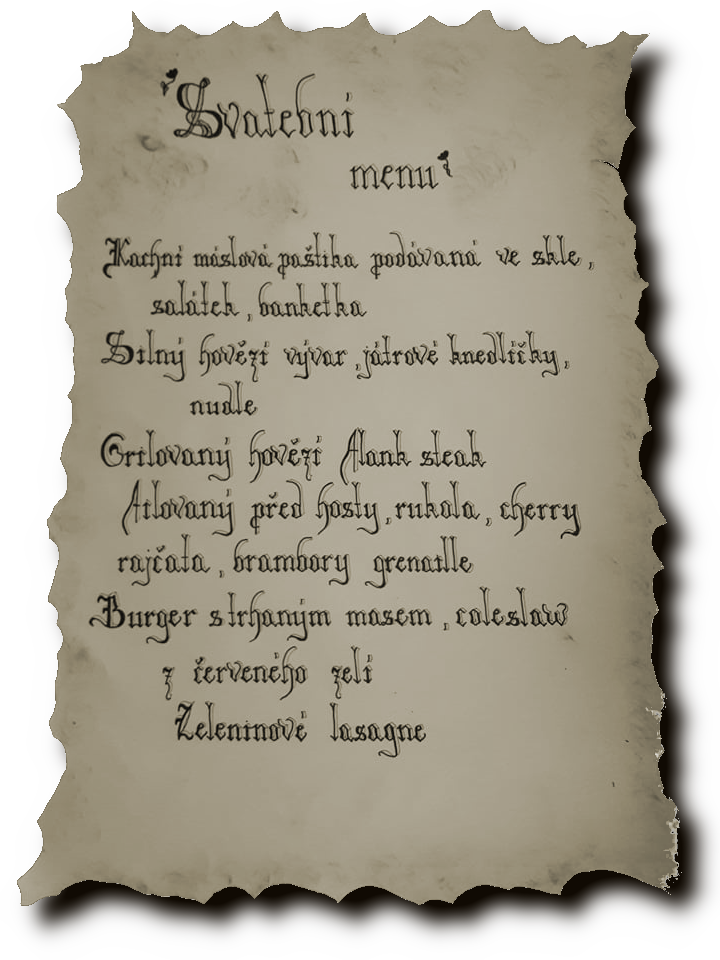 Svatební
menu
Kachní máslová paštika podávaná ve skle,
salátek, banketka
Silný hovězí vývar, játrové knedlíčky,
nudle
Grilovaný hovězí flank steak
filovaný před hosty, rukola, cherry
rajčata, brambory grenaille
Burger s trhaným masem, coleslaw
z červeného zelí
Zeleninové lasagne